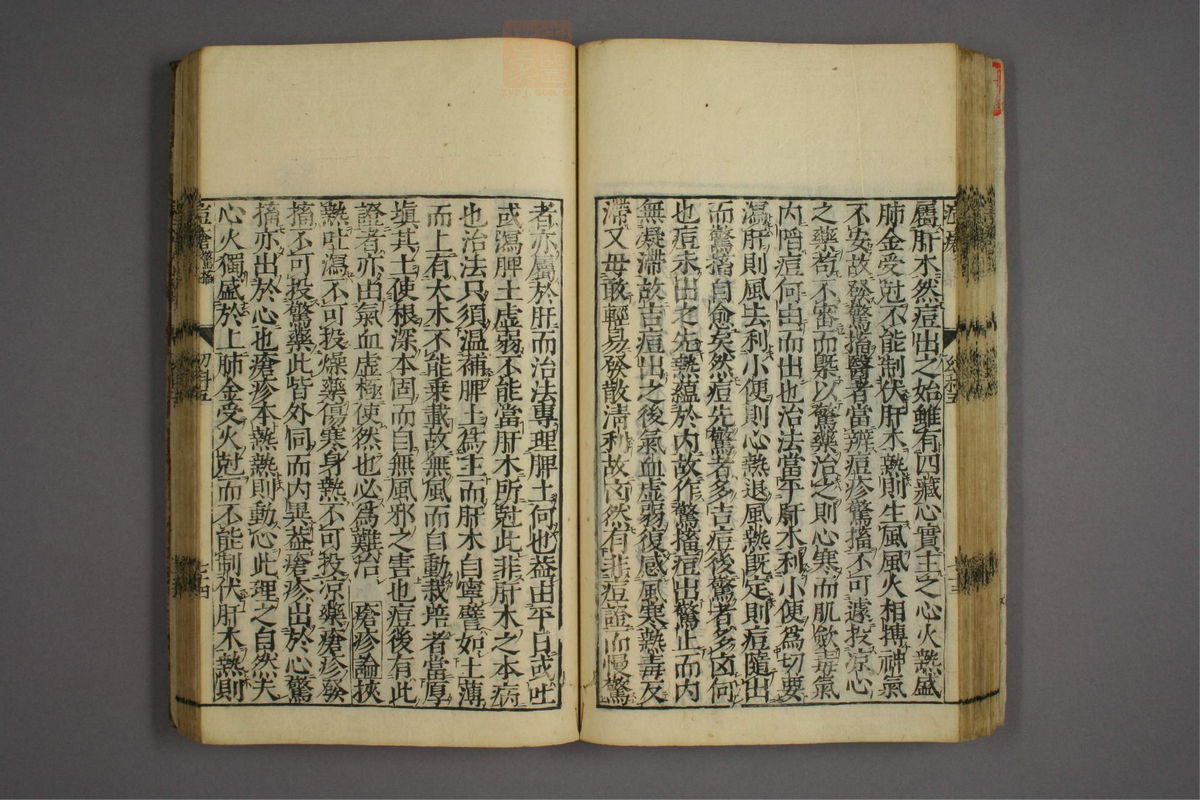 屬肝木然痘出之始雖有四藏心實主之心火熱盛
肺金受尅不能制伏肝木熱則生風風火相搏神氣
不安故發驚搐醫者當辨痘疹驚搐不可遽投凉心
之藥苟不審而槩以驚藥治之則心寒而肌歛毒氣
内陷痘何由而出也治法當平肝木利小便爲切要
瀉肝則風去利小便則心熱退風熱旣定則痘隨出
而驚搐自愈矣然痘先驚者多吉痘後驚者多凶何
也痘未出之先熱蘊於内故作驚搐痘出驚止而内
無凝滯故吉痘出之後氣血虚弱復感風寒熱毒反
滯又毋敢輕易發散清利故凶然有非痘證而慢驚
者亦屬於肝而治法專理脾土何也葢由平日或吐
或瀉脾土虚弱不能當肝木所尅此非肝木之本病
也治法只須温補脾土爲主而肝木自寧譬如土薄
而上有大木不能乗載故無風而自動栽培者當厚
塡其土使根深本固而自無風邪之害也痘後有此
證者亦由氣血虚極使然也必爲難治 瘡疹論挾
熱吐瀉不可投燥藥傷寒身熱不可投凉藥瘡疹發
搐不可投驚藥此皆外同而内異葢瘡疹出於心驚
搐亦出於心也瘡疹本熱熱則動心此理之自然夫
心火獨盛於上肺金受火尅而不能制伏肝木熱則
痘瘡驚搐 幼科五 七十四